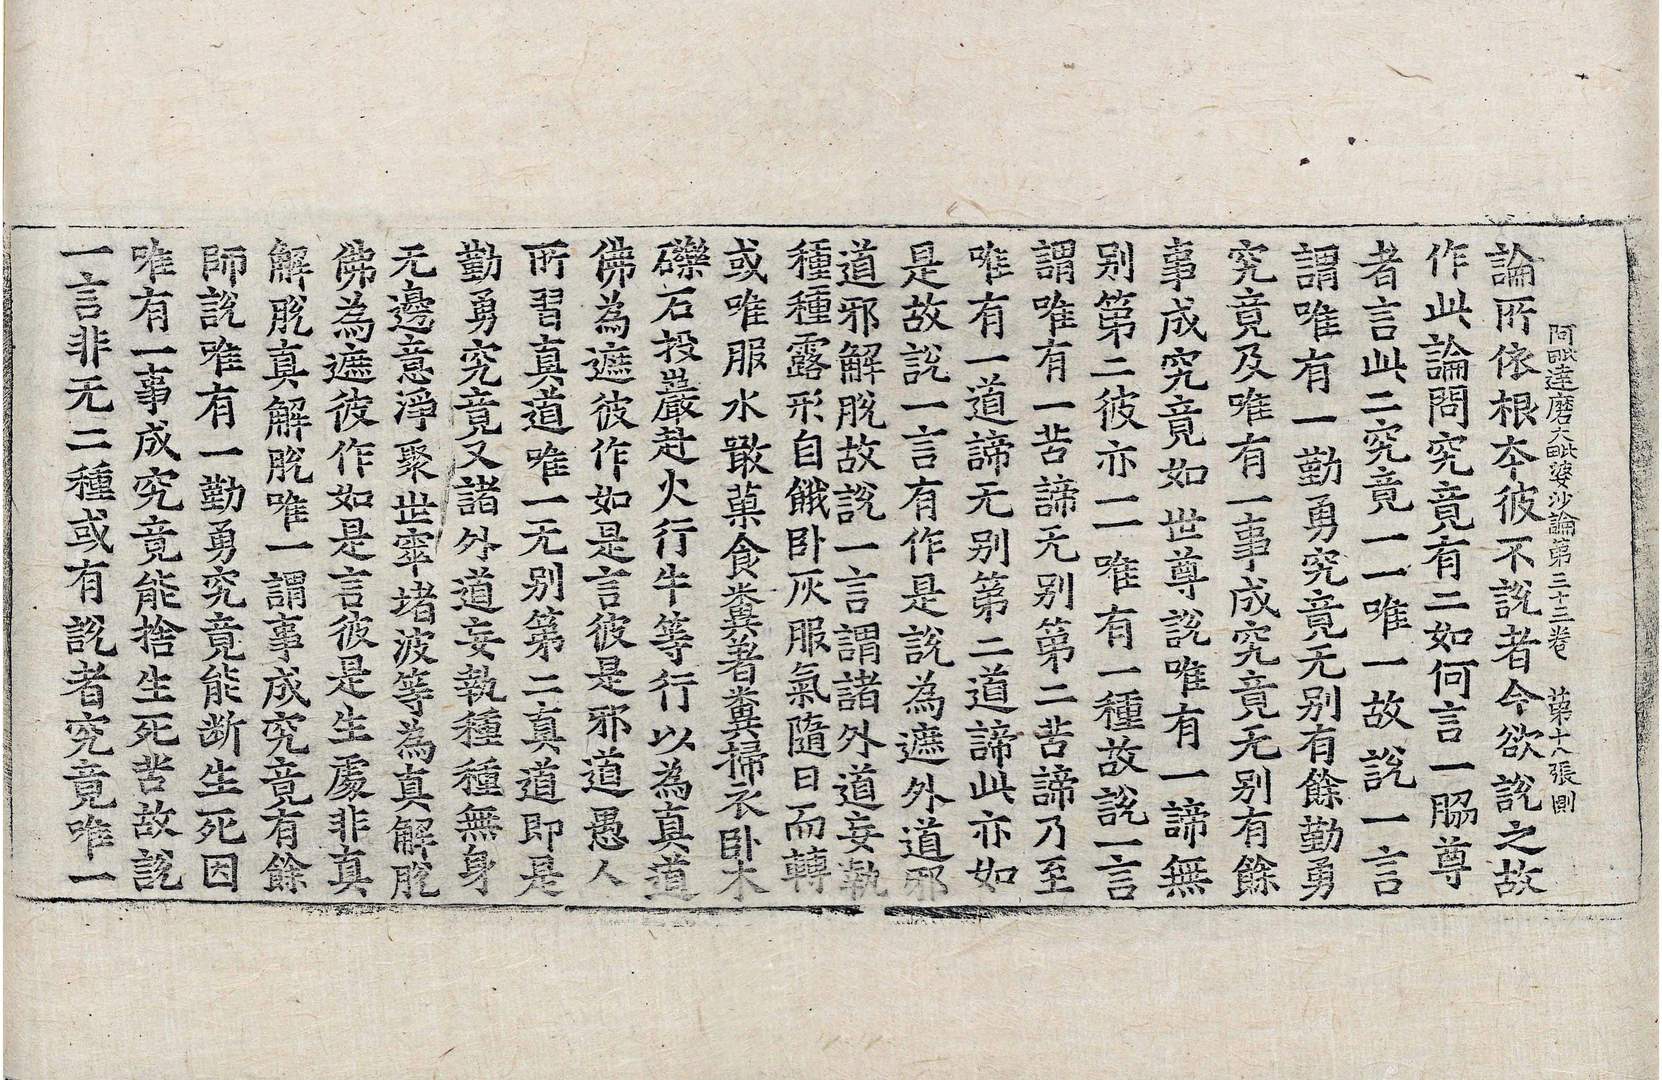 阿毗達磨大毗婆沙論第三十三卷　第十八張　側
論所依根本彼不說者今欲說之故
作此論問究竟有二如何言一脇尊
者言此二究竟一一唯一故說一言
謂唯有一勤勇究竟无別有餘勤勇
究竟及唯有一事成究竟无別有餘
事成究竟如世尊說唯有一諦無
別第二彼亦一一唯有一種故說一言
謂唯有一苦諦无別第二苦諦乃至
唯有一道諦无別第二道諦此亦如
是故說一言有作是說為遮外道邪
道邪解脫故說一言謂諸外道妄執
種種露形自餓臥灰服氣隨日而轉
或唯服水噉菓食糞著糞掃衣臥木
礫石投巖赴火行牛等行以為真道
佛為遮彼作如是言彼是邪道愚人
所習真道唯一无別第二真道即是
勤勇究竟又諸外道妄執種種無身
无邊意淨聚世窣堵波等為真解脫
佛為遮彼作如是言彼是生處非真
解脫真解脫唯一謂事成究竟有餘
師說唯有一勤勇究竟能斷生死因
唯有一事成究竟能捨生死苦故說
一言非无二種或有說者究竟唯一